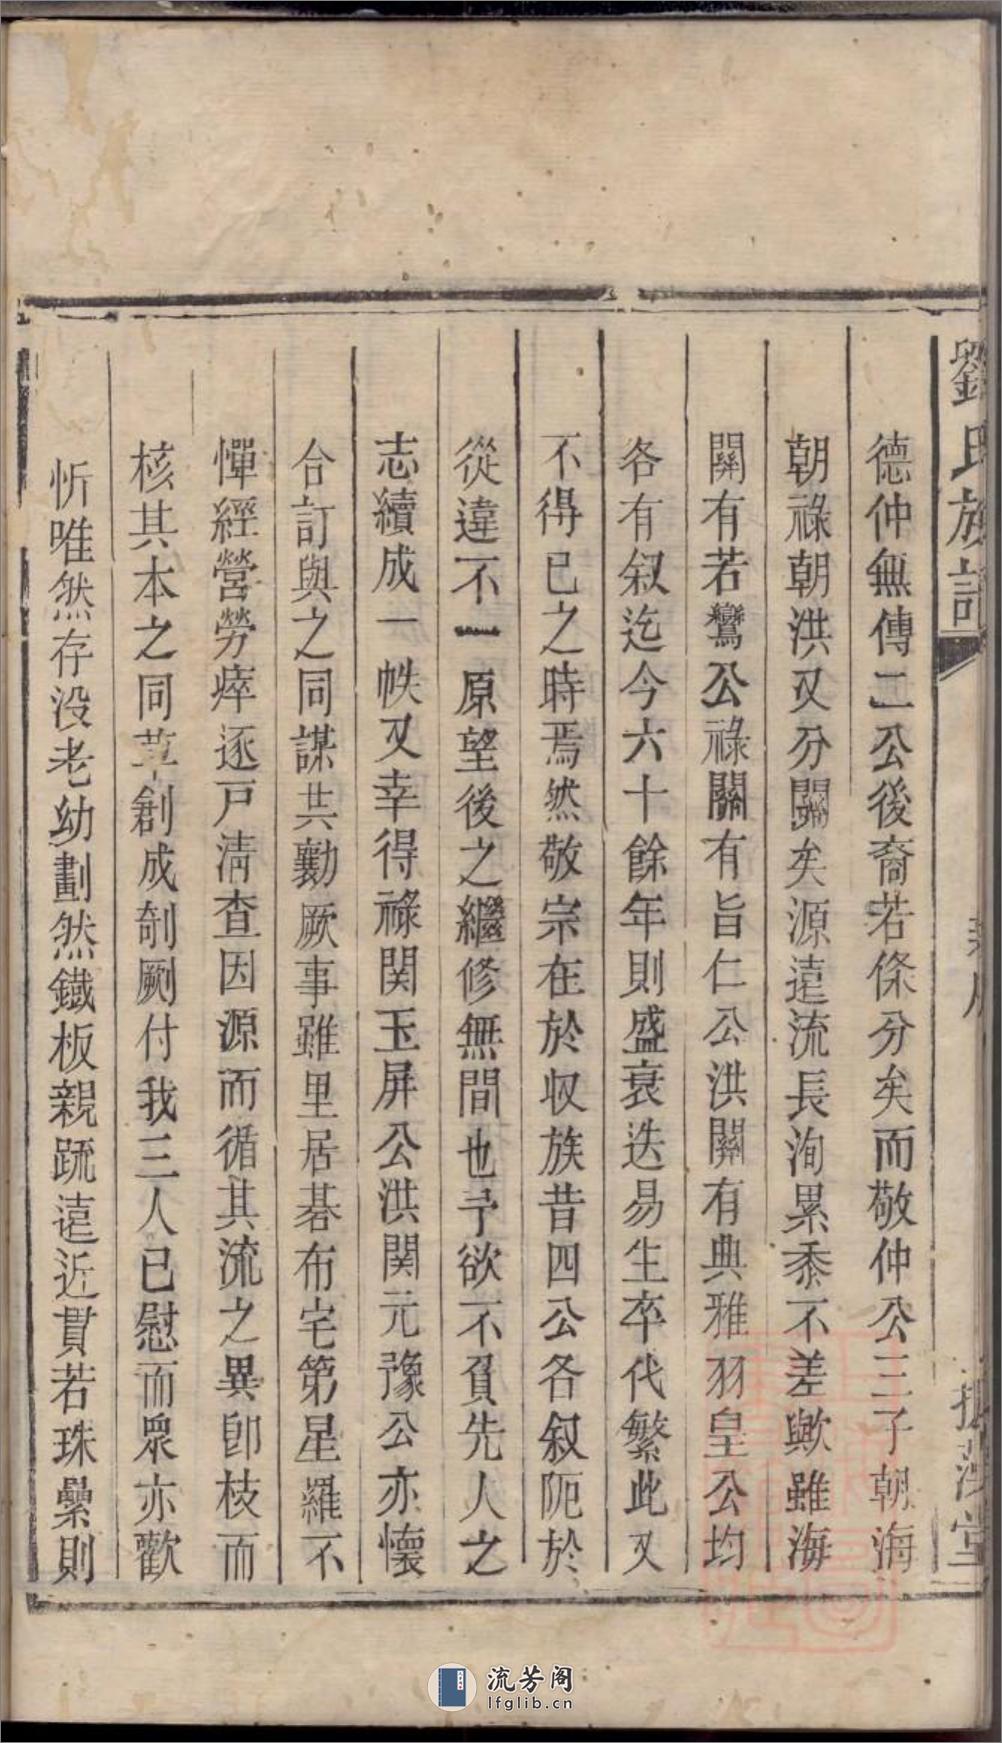 劉氏族譜
德仲無傳二公後裔若條分矣而敬仲公三子朝海
朝祿朝洪又分關矣源遠流長洵累黍不差歟雖海
關有若鸞公祿關有旨仁公洪關有典雅羽皇公均
各有叙迄今六十餘年則盛衰迭易生卒代繁此又
不得已之時焉然敬宗在於収族昔四公各叙阨於
從違不一原望後之繼修無間也予欲不負先人之
志續成一帙又幸得祿関玉屏公洪関元豫公亦懷
合訂與之同謀共勷厥事雖里居碁布宅第星羅不
憚經營勞瘁逐戶清查因源而循其流之異卽枝而
核其本之同草創成剞劂付我三人已慰而衆亦歡
忻唯然存沒老幼劃然鐵板親疏遠近貫若珠纍則
流芳阁
lfglib.cn